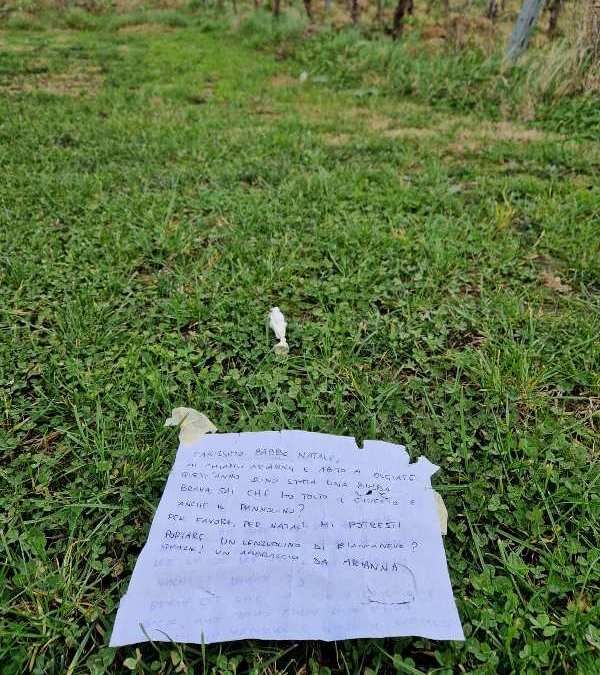 CARISSIMO BABBO NATALE,
MI CHIAMO ARIANNA E ABITO A OLGIATE
QUEST'ANNO SONO STATA UNA BIMBA
BRAVA SAI CHE HO TOLTO IL CIUCCIO E
ANCHE IL PANNOLINO?
PER FAVORE, PER NATALE MI POTRESTI
PORTARE UN LENZUOLINO DI BIANCANEVE?
GRAZIE! UN ABBRACCIO DA ARIANNA